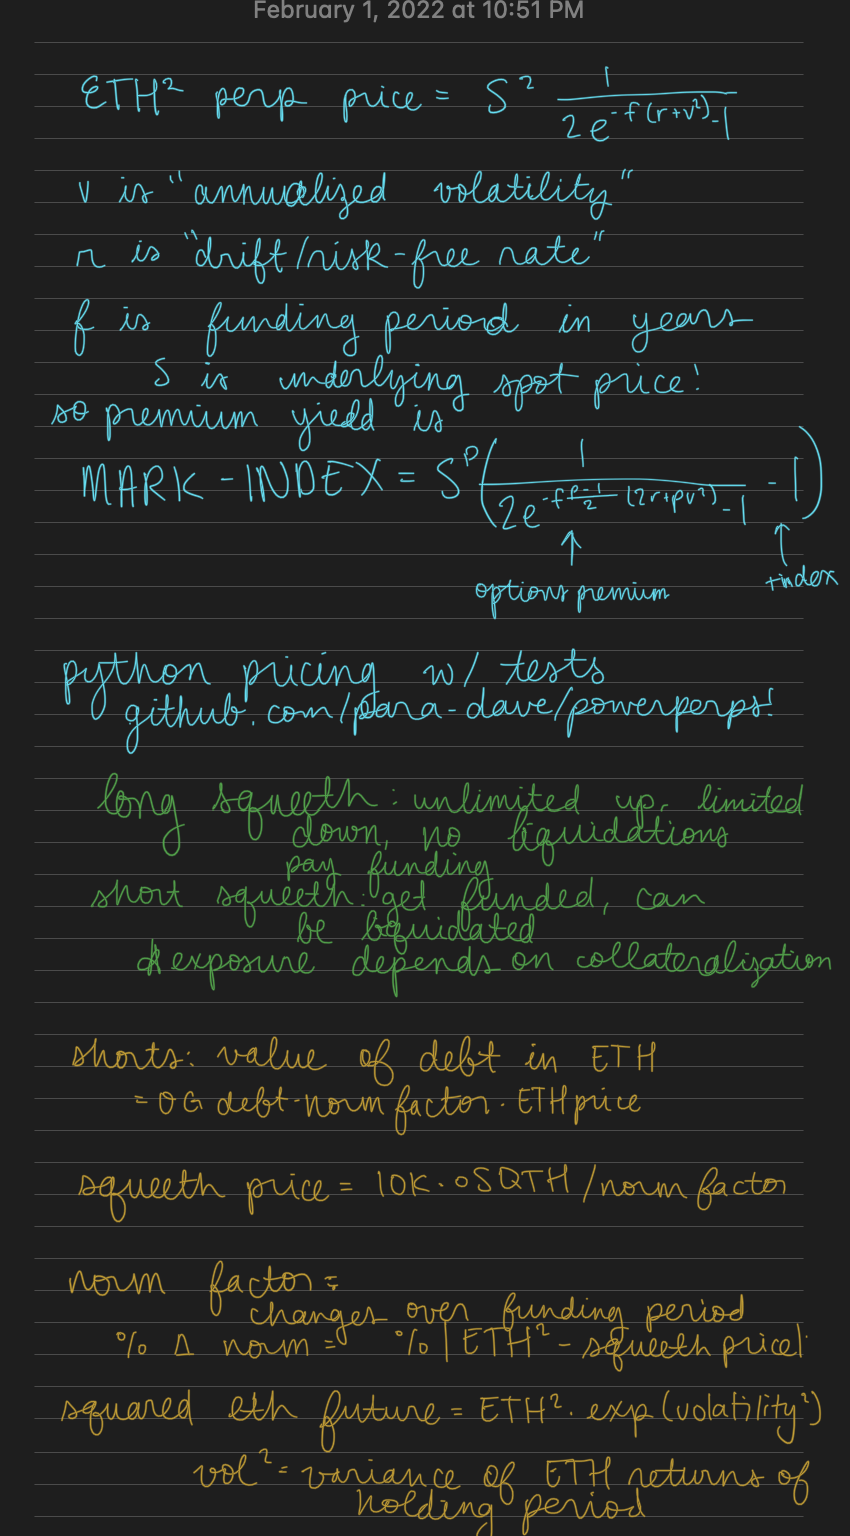 February 1, 2022 at 10:51 PM
ETH² perp price = S² 1/(2e^(-f(r+v²)) -1)
v is "annualized volatility"
r is "drift/risk-free rate"
f is funding period in years
S is underlying spot price!
so premium yield is
MARK - INDEX = S^p (1/(2e^(-f (p-1)/2 (2r+pv²)) -1) - 1)
↑ ↑
options premium +index
python pricing w/ tests
github.com/para-dave/powerperps!
long squeeth: unlimited up, limited
down, no liquidations
pay funding
short squeeth: get funded, can
be liquidated
exposure depends on collateralization
shorts: value of debt in ETH
= OG debt · norm factor · ETH price
squeeth price = 10K · oSQTH / norm factor
norm factor =
changes over funding period
% Δ norm = % |ETH² - squeeth price|
squared eth future = ETH² · exp (volatility²)
vol² = variance of ETH returns of
holding period